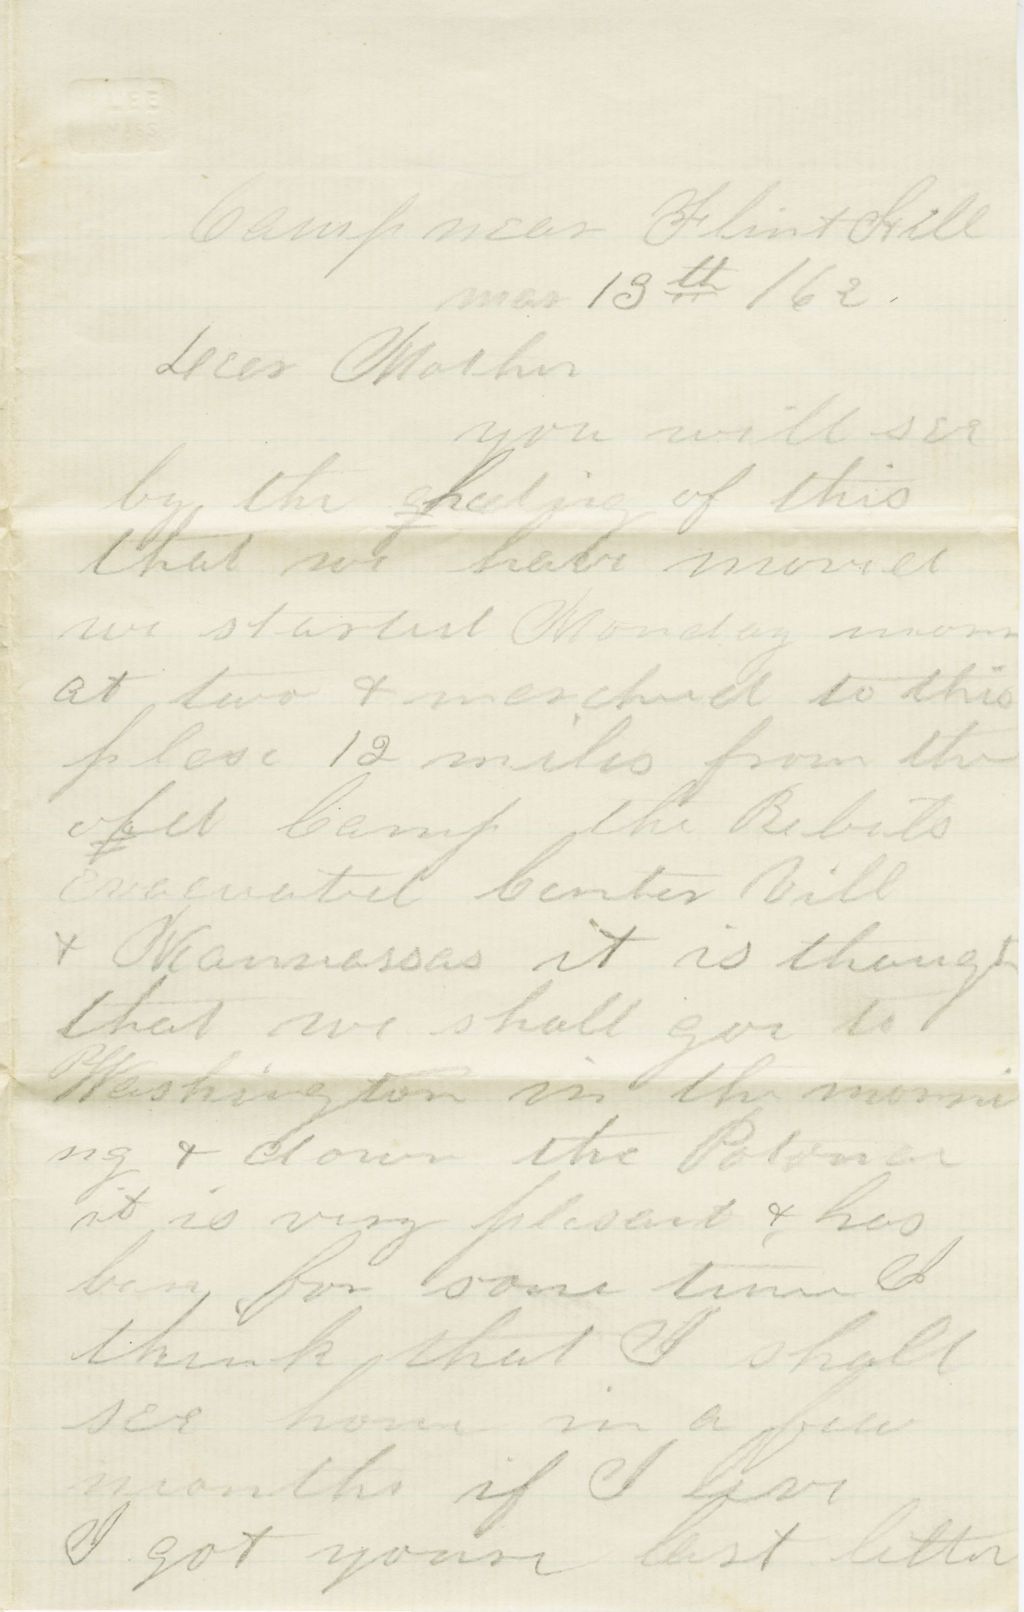 LEE
MASS
Camp near Flint Hill
mar 13th /62.
Dear Mother
you will see
by the heding of this
that we have moved
we started Monday morn
at two & marched to this
plase 12 miles from the
old Camp the Rebuls
Evacuated Center Vill
& Mannassas it is though
that we shall goe to
Washington in the morni
ng & down the Potomac
it is very plesant & has
ben for some time I
think that I shall
see home in a few
months if I live
I got youre last letter